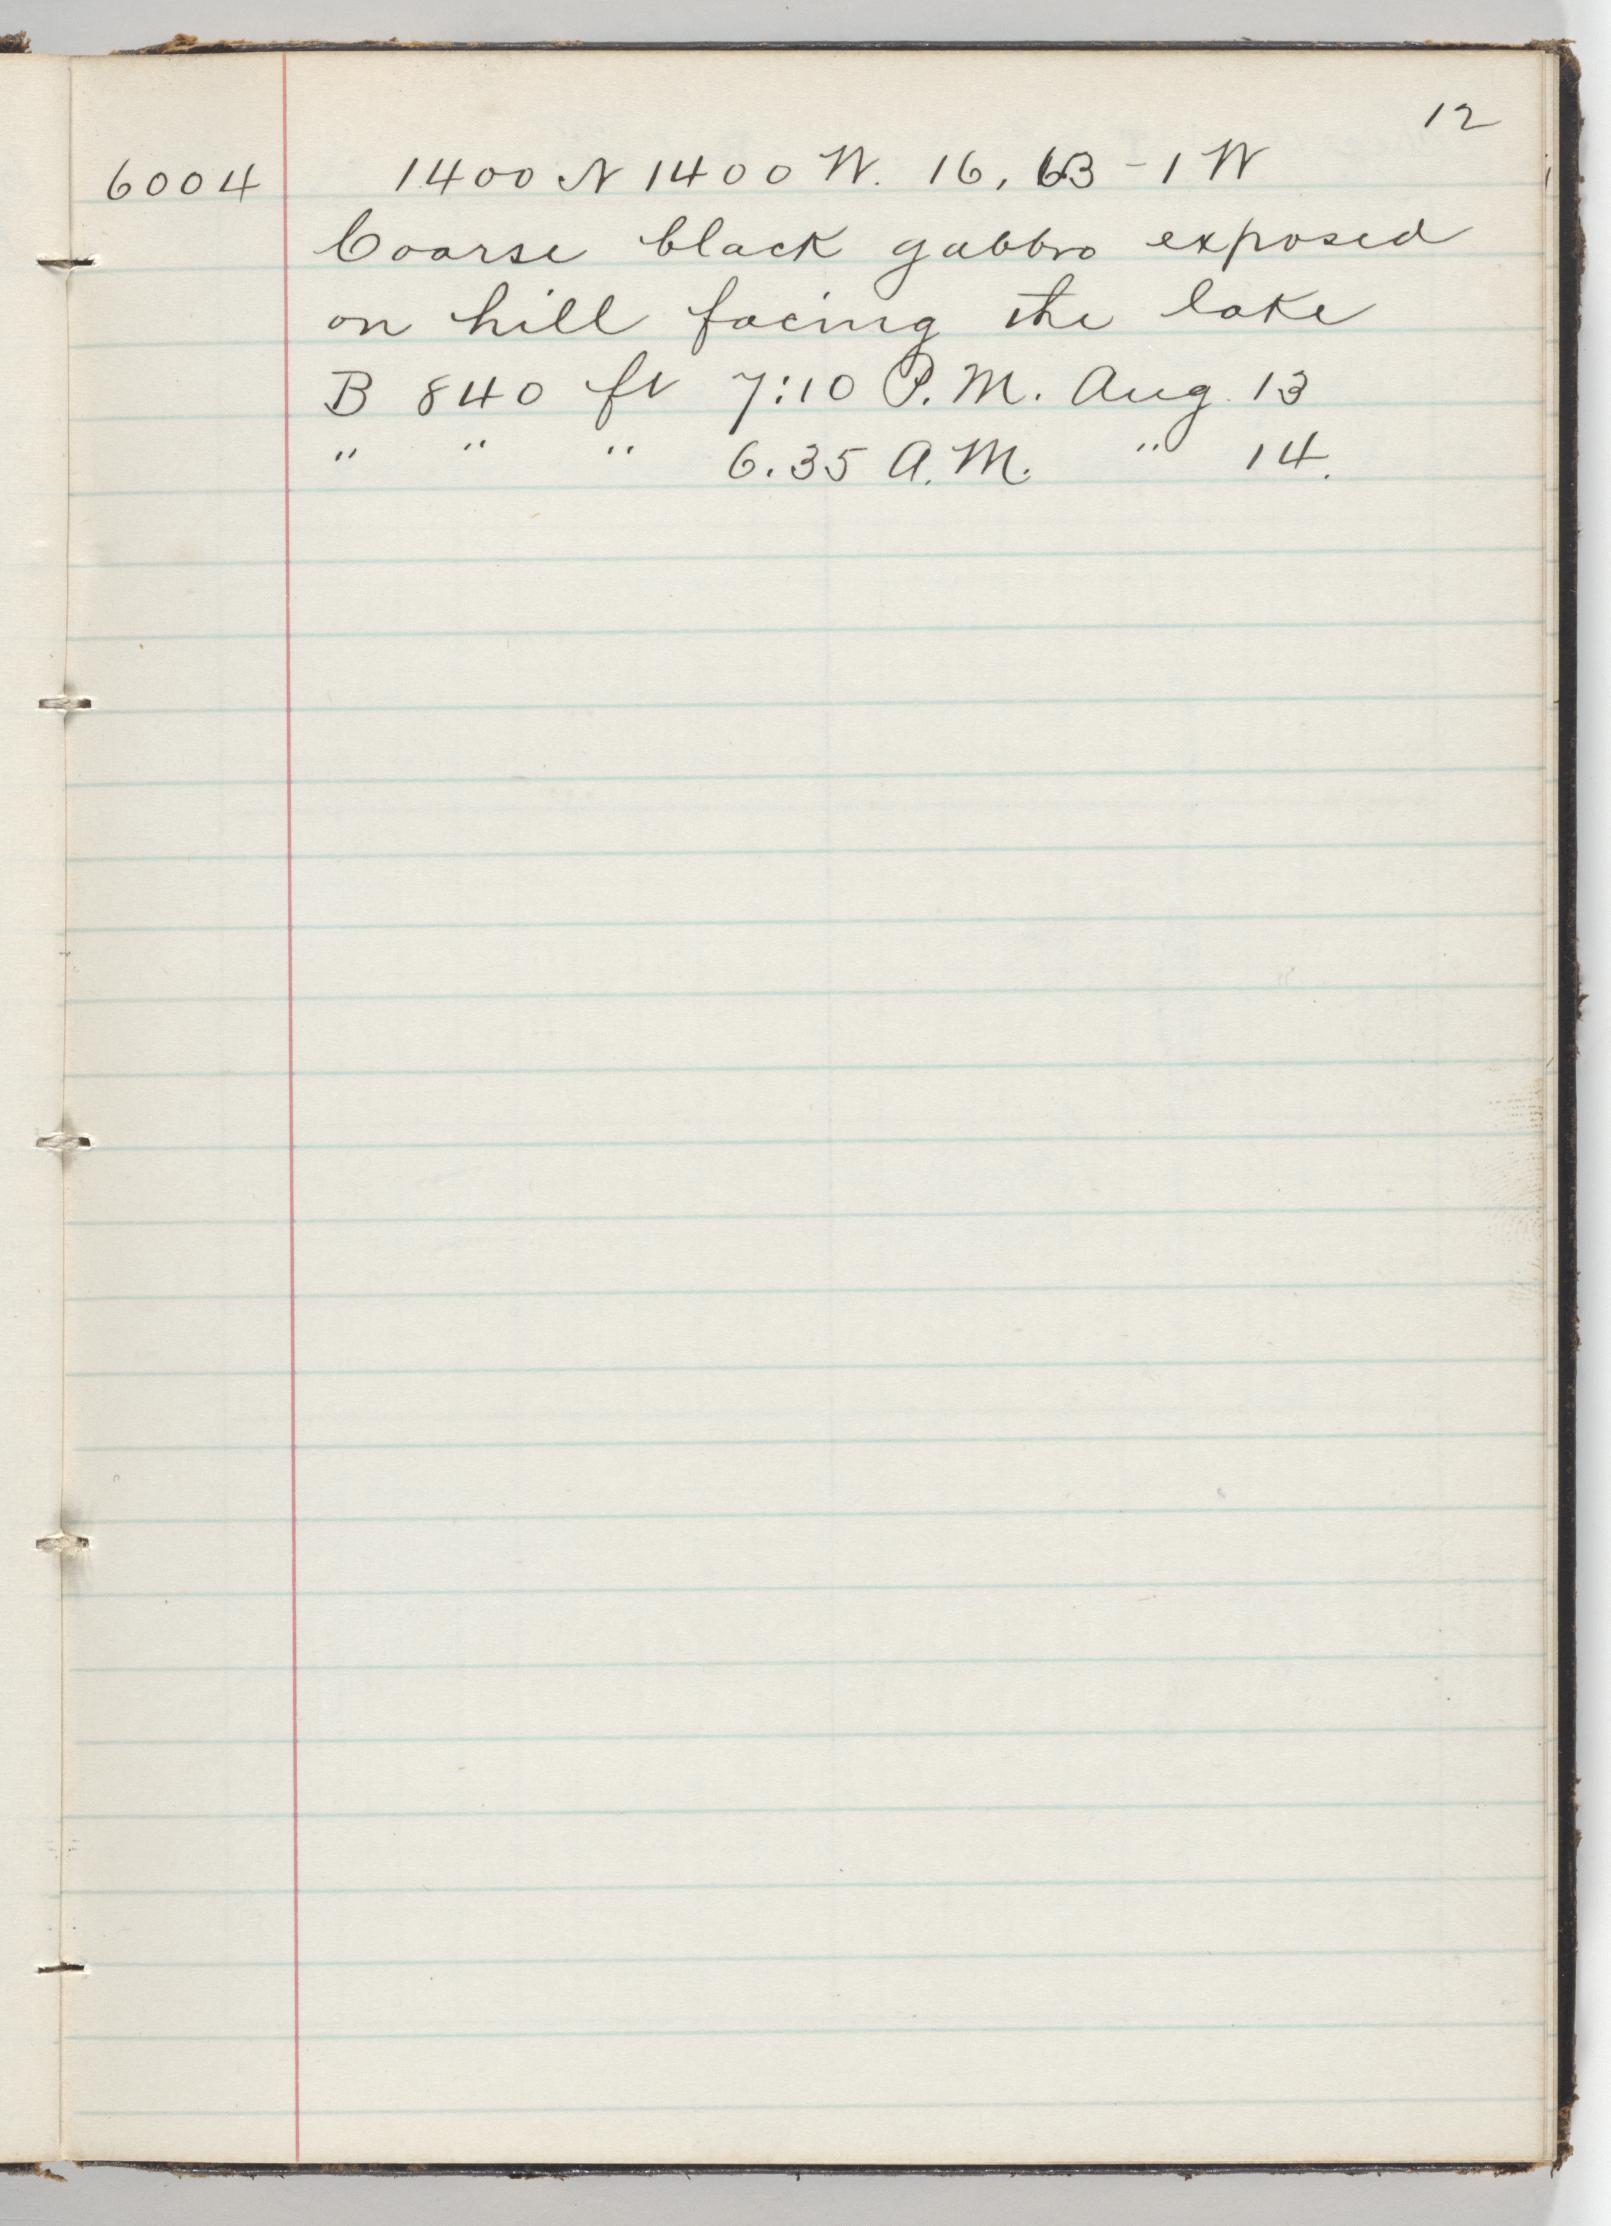 12
6004 1400 N 1400 W. 16, 63-1 W
Coarse black gabbro exposed
on hill facing the lake
B 840 ft 7:10 P.M. Aug. 13
" " " 6.35 A.M. " 14.